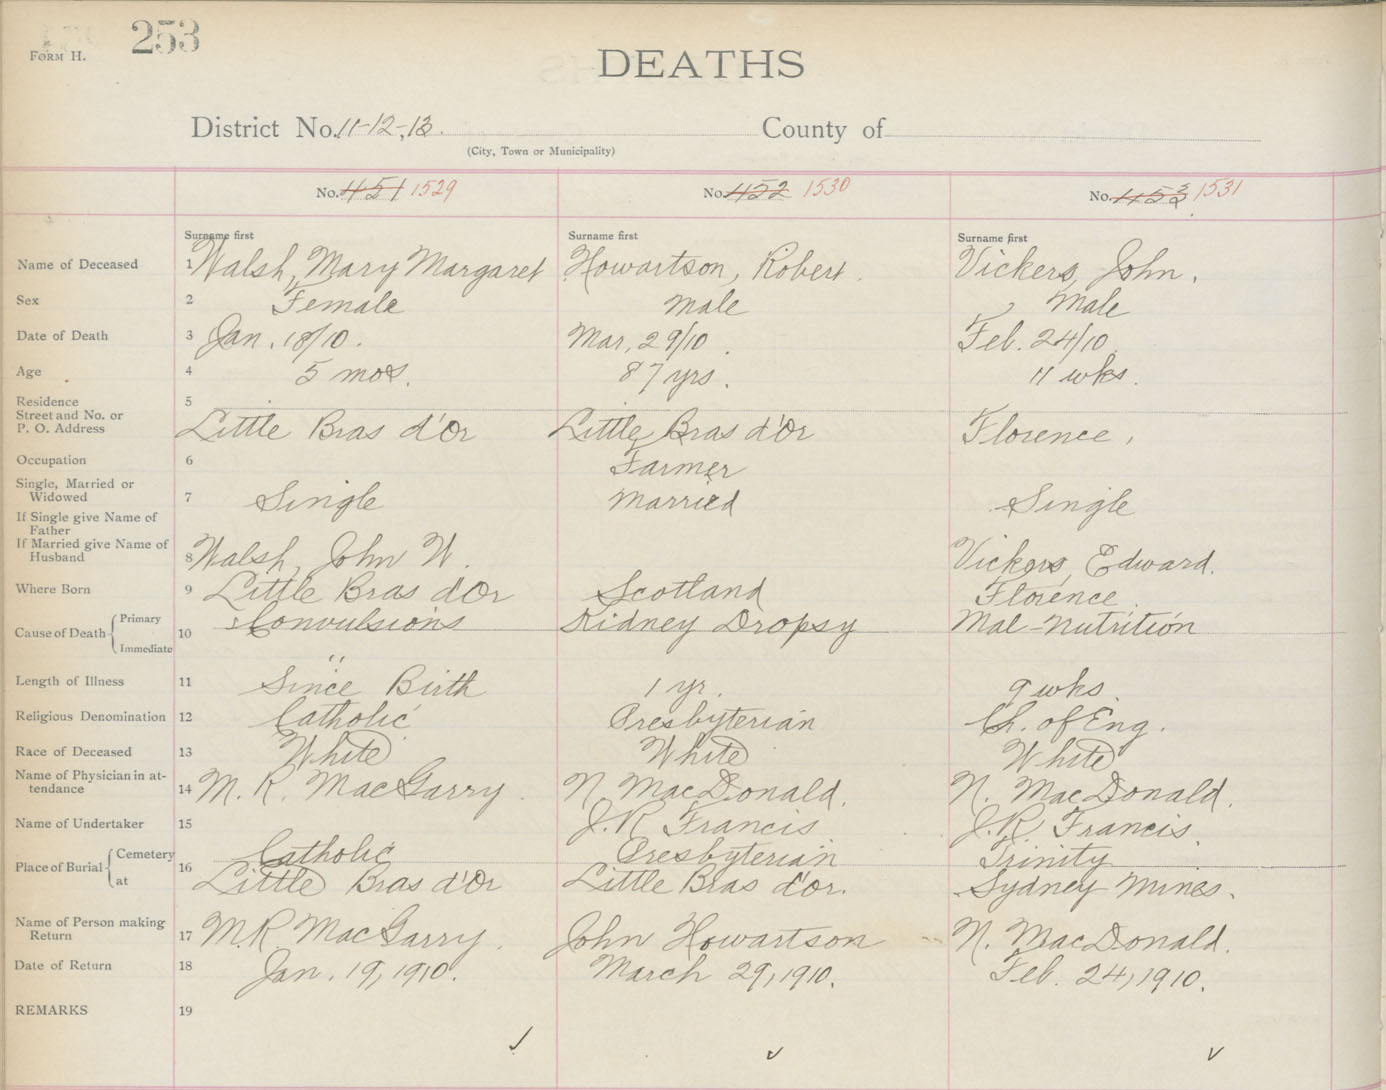 253
FORM H.
DEATHS
District No. 11-12-,13. County of
(City, Town or Municipality)
No. 451 1529 No. 452 1530 No. 453 1531
Surname first Surname first Surname first
Name of Deceased 1 Walsh, Mary Margaret Howartson, Robert. Vickers, John.
Sex 2 Female Male Male
Date of Death 3 Jan. 18/10. Mar, 29/10. Feb. 24/10
Age 4 5 mos. 87 yrs. 11 wks.
Residence 5
Street and No. or
P. O. Address Little Bras d'Or Little Bras d'Or Florence,
Occupation 6 Farmer
Single, Married or
Widowed 7 Single Married Single
If Single give Name of
Father
If Married give Name of
Husband 8 Walsh, John W. Vickers, Edward.
Where Born 9 Little Bras d'Or Scotland Florence
Cause of Death Primary Convulsions Kidney Dropsy Mal-nutrition
10
Immediate "
Length of Illness 11 Since Birth 1 yr. 9 wks.
Religious Denomination 12 Catholic Presbyterian Ch. of Eng.
Race of Deceased 13 White White White
Name of Physician in at-
tendance 14 M. R. MacGarry. N. MacDonald. N. MacDonald.
Name of Undertaker 15 J. R. Francis J. R. Francis.
Place of Burial Cemetery Catholic Presbyterian Trinity
16
at Little Bras d'Or Little Bras d'or. Sydney Mines.
Name of Person making
Return 17 M. R. MacGarry. John Howartson N. MacDonald.
Date of Return 18 Jan. 19, 1910. March 29, 1910. Feb. 24, 1910.
REMARKS 19